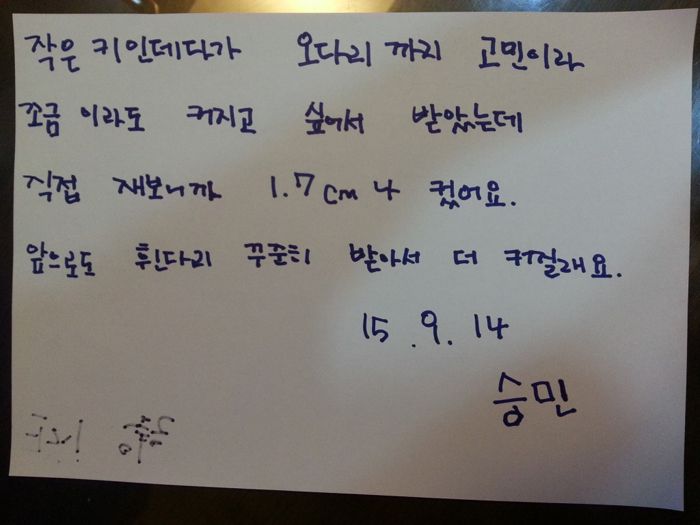 작은 키인데다가 오다리 까지 고민이라
조금 이라도 커지고 싶어서 받았는데
직접 재보니까 1.7cm나 컸어요.
앞으로도 휜다리 꾸준히 받아서 더 커질래요.
15.9.14
승민